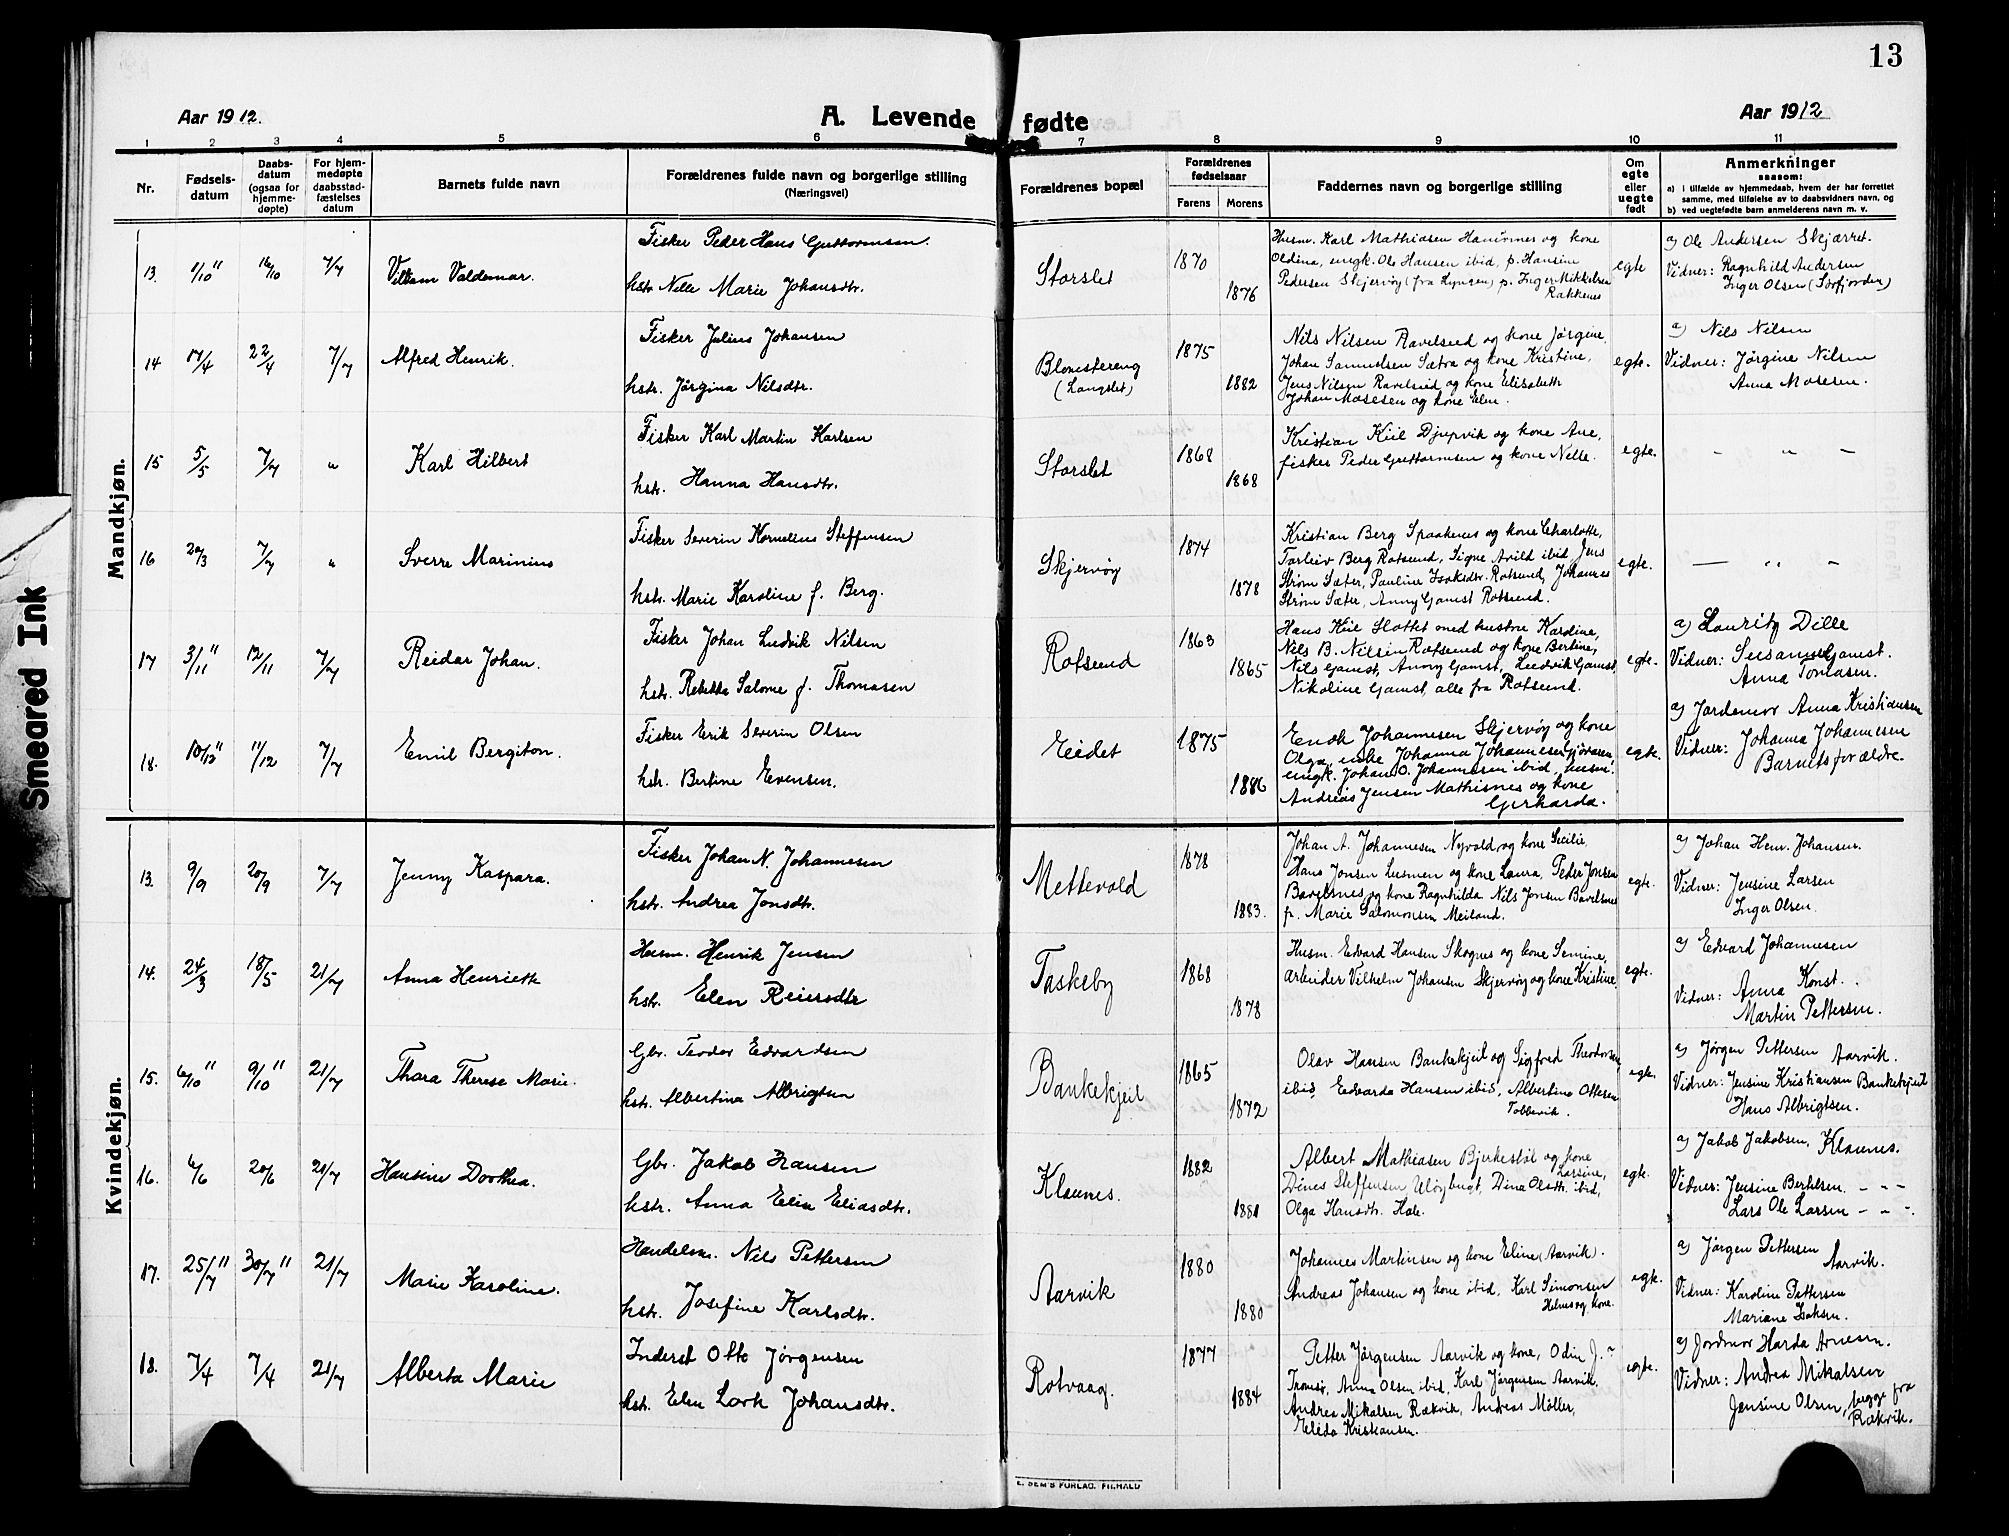 13
Aar 1912.
A. Levende fødte
Aar 1912
1 2 3 4 5 6 7 8 9 10 11
Nr.
Fødsels-
datum
Daabs-
datum
(ogsaa for
hjemme-
døpte)
For hjem-
medøpte
daabsstad-
fæstelses
datum
Barnets fulde navn
Forældrenes fulde navn og borgerlige stilling
(Næringsvei)
Forældrenes bopæl
Forældrenes
fødselsaar
Farens Morens
Faddernes navn og borgerlige stilling
Om
egte
eller
uegte
født
Anmerkninger
saasom:
a) i tilfælde av hjemmedaab, hvem der har forrettet
samme, med tilføielse av to daabsvidners navn, og
b) ved uegtefødte barn anmelderens navn m. v.
Mandkjøn.
13. 1/10" 16/10 7/7 Villiam Valdemar.
Fisker Peder Hans Guttormsen.
hstr. Nelle Marie Johansdtr.
Storslet 1870 1876
Husm. Karl Mathiasen Hannes og kone
Oldina, ungk. Ole Hansen ibid, p. Hansine
Pedersen Skjervøy (fra Lyngen) p. Inger Mikkelsen
Rakkenes
egte
a) Ole Andersen Skjærret.
Vidner: Ragnhild Andersen
Inger Olsen (Sørfjorden)
14 17/4 22/4 7/7 Alfred Henrik.
Fisker Julius Johansen
hstr. Jørgina Nilsdtr.
Blomstereng
(Langslet)
1875 1882
Nils Nilsen Ravelseid og kone Jørgine,
Johan Samuelsen Sætra og kone Kristine,
Jens Nilsen Ravelseid og kone Elisabeth
Johan Mosesen og kone Elen.
egte.
a) Nils Nilsen
Vidner: Jørgine Nilsen
Anna Mosesen.
15 5/5 7/7 " Karl Hilbert
Fisker Karl Martin Karlsen
hstr. Hanna Hansdtr.
Storslet 1868 1868
Kristian Kiil Djupvik og kone Ane,
fisker Peder Guttormsen og kone Nelle.
egte. – " –
16 20/3 7/7 " Sverre Marinius
Fisker Severin Kornelius Steffensen
hstr. Marie Karoline f. Berg.
Skjervøy 1874 1878
Kristian Berg Spaakenes og kone Charlotte,
Torleiv Berg Rotsund, Signe Avild ibid, Jens
Strøm Sæter, Pauline Isaksdtr. Rotsund, Johannes
Strøm Sæter, Anny Gamst Rotsund.
egte. – " –
17 3/11" 12/11 7/7 Reidar Johan.
Fisker Johan Ludvik Nilsen
hstr. Rebekka Salome f. Thomasen
Rotsund 1863 1865
Hans Kiil Slottet med hustru Karoline,
Nils B. Nilsen Rotsund og kone Bertine,
Nils Gamst, Anny Gamst, Ludvik Gamst,
Nikoline Gamst, alle fra Rotsund.
egte.
a) Lauritz Dille
Vidner: Susanne Gamst.
Anna Tomasen.
18. 10/12" 11/12 7/7 Emil Bergiton.
Fisker Erik Severin Olsen
hstr. Bertine Evensen.
Eidet 1875 1886
Enok Johannesen Skjervøy og kone
Olga, enke Johanna Johannesen Gjøvaren,
ungk. Johan O. Johannesen ibid, husm.
Andreas Jensen Mathisnes og kone
Gerharda.
egte.
a) Jordemor Anna Kristiansen
Vidner: Johanna Johannessen
Barnets forældre.
Kvindekjøn.
13. 9/9 20/9 7/7 Jenny Kaspara.
Fisker Johan N. Johannesen
hstr. Andrea Jonsdtr.
Mettevold 1878 1883.
Johan A. Johannesen Nyvold og kone Secilie,
Hans Jonsen Lusmen og kone Laura, Peder Jonsen
Bavelsnes og kone Ragnhilda Nils Jonsen Bavelsnes
p. Marie Salomonsen Meiland.
egte.
a) Johan Henr. Johansen.
Vidner: Jensine Larsen
Inger Olsen.
14. 24/3 18/5 21/7 Anna Henriette
Husm. Henrik Jensen
hstr. Elen Reiersdtr
Taskeby 1868 1878
Husm. Edvard Hansen Skognes og kone Semine,
arbeider Vilhelm Johansen Skjervøy og kone Kristine.
egte.
a) Edvard Johannesen
Vidner: Anna Konst.
Martin Pettersen.
15. 6/10" 9/10" 21/7 Thora Therese Marie.
Gbr. Teodor Edvardsen
hstr. Albertina Albrigtsen
Bankekjeil 1865 1872
Olav Hansen Bankekjeil og Sigfred Theodorsen
ibid, Edvarda Hansen ibid, Albertine Ottesen
Tobbevik.
egte.
a) Jørgen Pettersen Aarvik.
Vidner: Jensine Kristiansen Bankekjeil
Hans Albrigtsen.
16. 6/6 20/6 21/7 Hansine Dorthea.
Gbr. Jakob Hansen
hstr. Anna Elin Eliasdtr.
Klaunes. 1882 1881
Albert Mathiasen Bjerkestøl og kone
Larsine,
Dines Steffensen Uløybugt, Dina Olsdtr. ibid,
Olga Hansdtr. Hole.
egte.
a) Jakob Jakobsen, Klaunes.
Vidner: Jensine Berthelsen. – " –
Lars Ole Larsen – " –.
17. 25/7" 30/7" 21/7 Marie Karoline.
Handelsm. Nils Pettersen
hstr. Josefine Karlsdtr.
Aarvik 1880 1880
Johannes Martinsen og kone Eline (Aarvik).
Andreas Johansen og kone ibid, Karl Simonsen
Helnes og kone.
egte.
a) Jørgen Pettersen
Aarvik.
Vidner: Karoline Pettersen
Mariane Isaksen.
18. 7/4 7/4 21/7 Alberta Marie
Inderst Otto Jørgensen
hstr. Elen Lovk Johansdtr.
Rotvaag. 1877 1884
Petter Jørgensen Aarvik og kone, Odin J.
Tromsø, Anna Olsen ibid, Karl Jørgensen Aarvik,
Andrea Mikalsen Rækvik, Andreas Möller,
Elida Kristiansen.
egte.
a) Jordmor Harda Arnesen.
Vidner: Andrea Mikalsen
Jensine Olsen, begge fra
Rækvik.
E. SEM'S FORLAG, FR.HALD
Smeared Ink